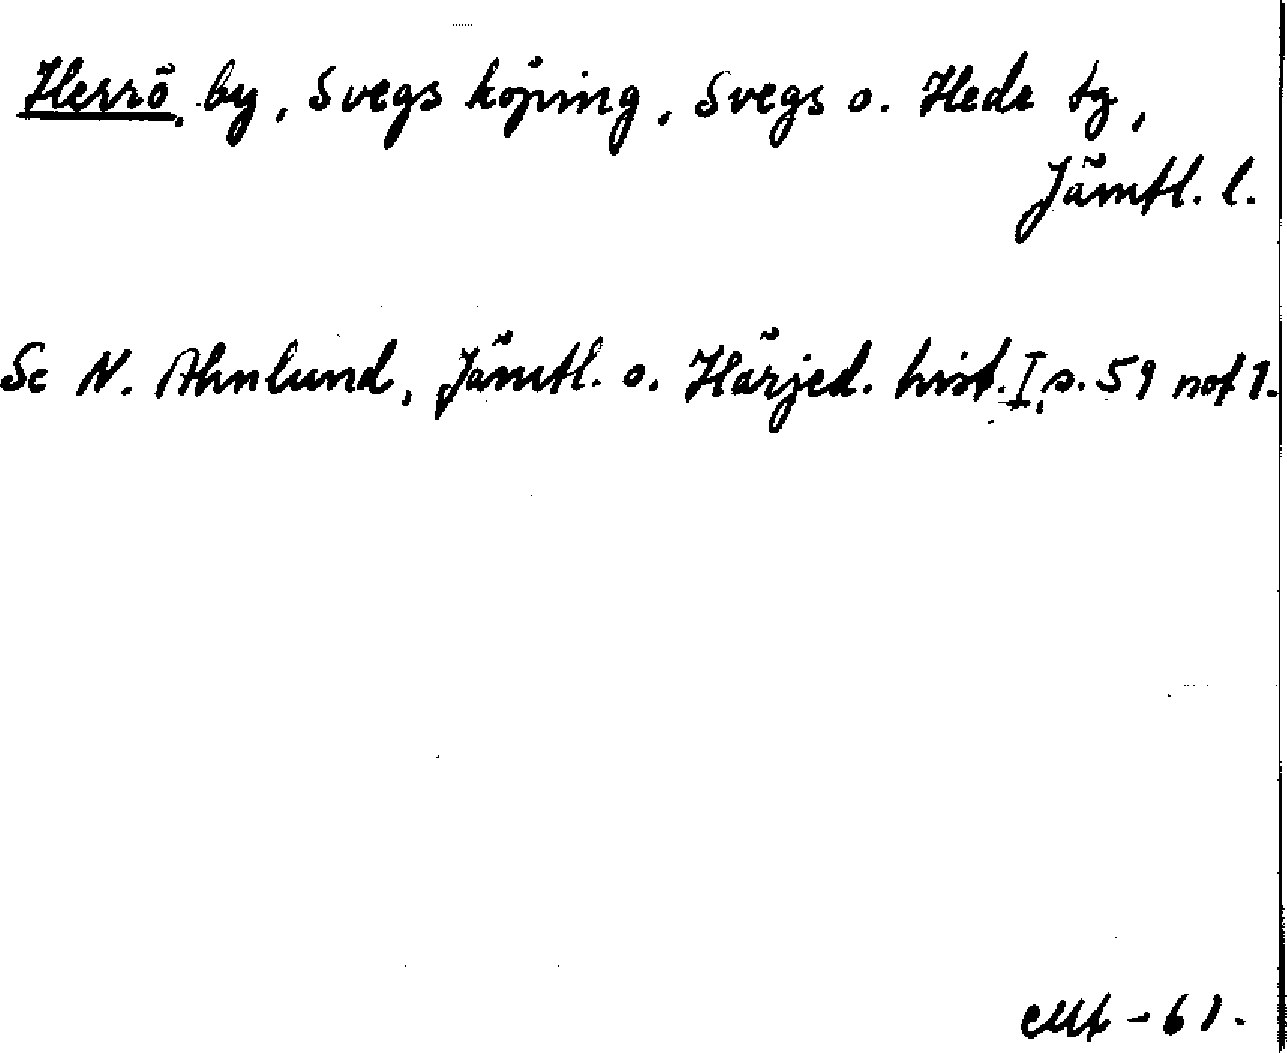 Herrö, by, Svegs köping, Svegs o. Heds tg,
Jämtl. l.
Se N. Ahnlund, Jämtl. o. Härjed. hist. I, s. 59 not 1.
-61.